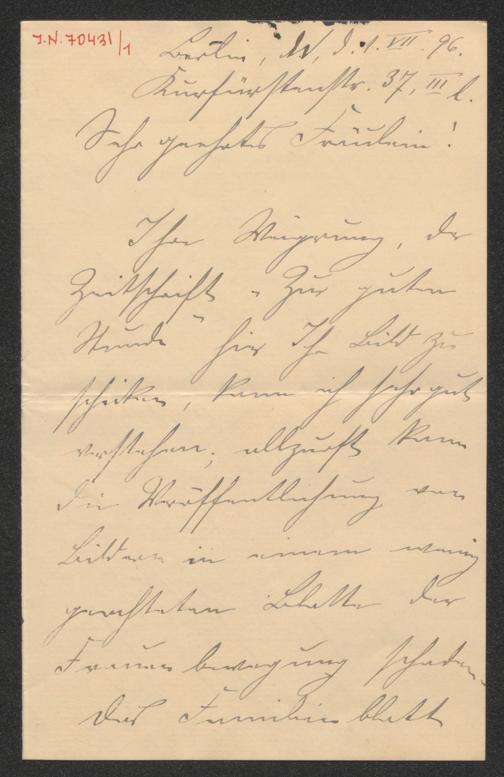 J.N. 70431/1
Berlin, W, d. 1. VII. 96.
Kurfürstenstr. 37, III l.
Sehr geehrtes Fräulein!
Ihre Weigerung, der
Zeitschrift "Zur guten
Stunde" hier Ihr Bild zu
schicken, kann ich sehr gut
verstehen; allzuoft kann
die Veröffentlichung von
Bildern in einem wenig
geachteten Blatte der
Frauenbewegung schaden.
Das Familienblatt